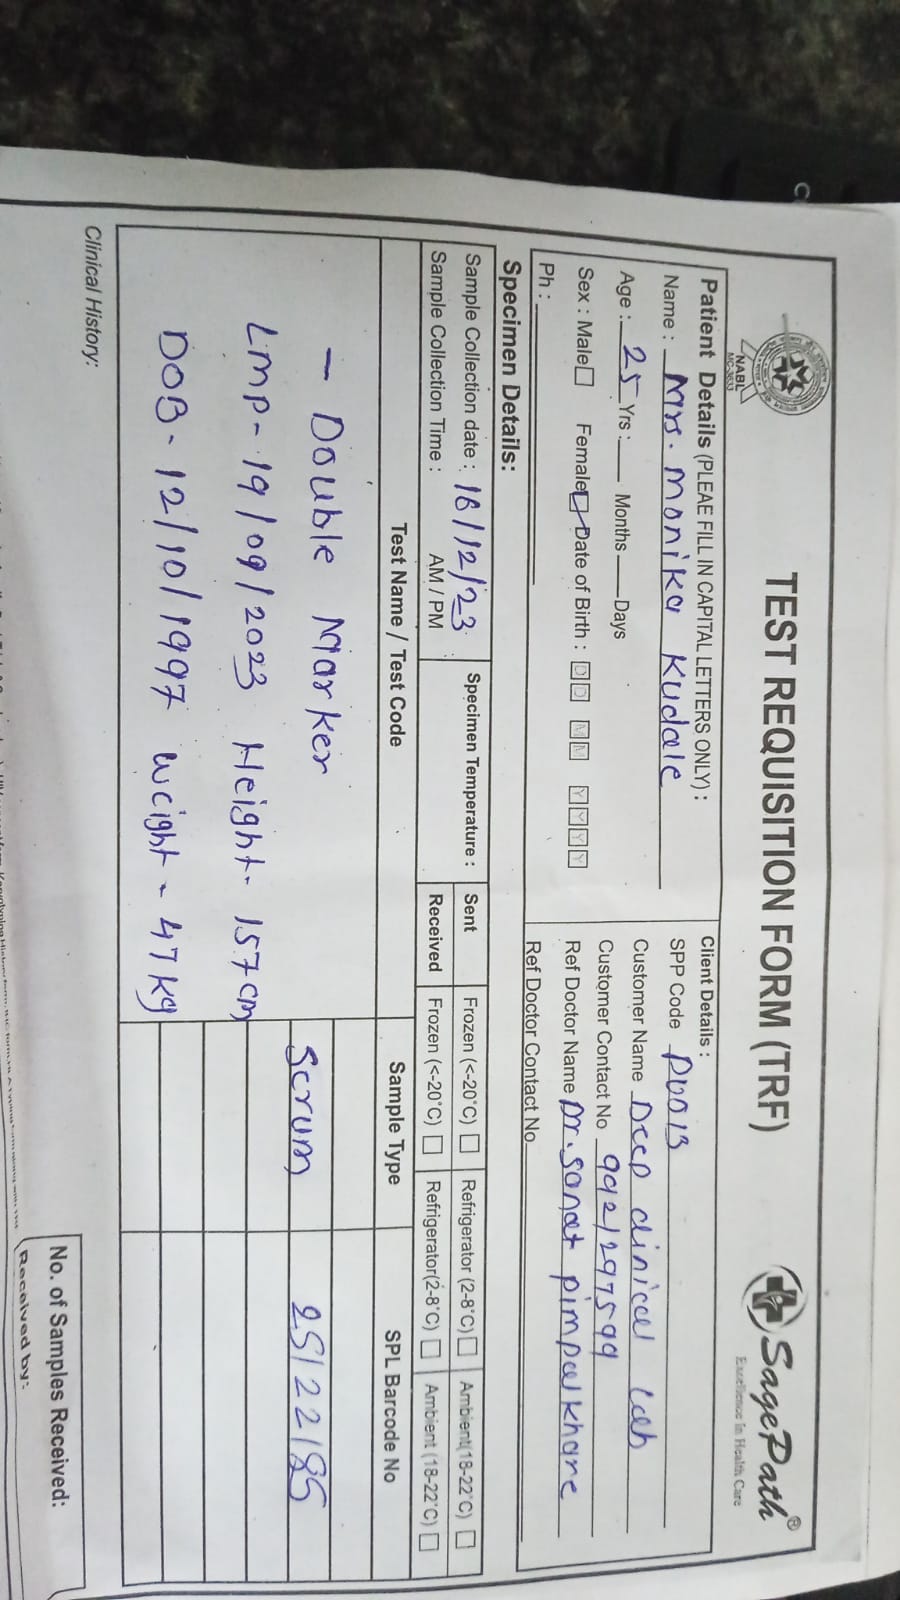 TEST REQUISITION FORM (TRF)
SagePath®
Excellence In Health Care
NABL
MC-3653
Patient Details (PLEAE FILL IN CAPITAL LETTERS ONLY) :
Name : Mrs. Monika Kudale
Age : 25 Yrs : Months Days
Sex : Male Female Date of Birth : D D M M Y Y Y Y
Ph :
Client Details :
SPP Code PU013
Customer Name Deep clinical Lab
Customer Contact No 9921297599
Ref Doctor Name Dr. Sanat pimpalkhare
Ref Doctor Contact No
Specimen Details:
Sample Collection date : 18/12/23
Sample Collection Time : AM / PM
Specimen Temperature :
Sent Frozen (<-20°C) Refrigerator (2-8°C) Ambient(18-22°C)
Received Frozen (<-20°C) Refrigerator(2-8°C) Ambient (18-22°C)
Test Name / Test Code Sample Type SPL Barcode No
- Double Marker Serum 25122185
LMP- 19/09/2023 Height- 157cm
DOB- 12/10/1997 weight - 47kg
Clinical History:
No. of Samples Received:
Received by: